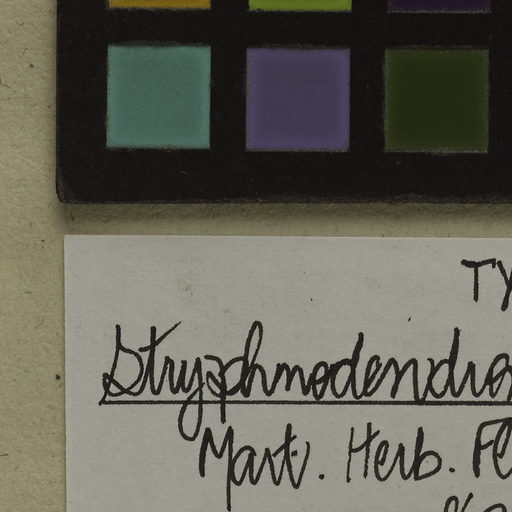 TY
Stryphnodendron
Mart. Herb. Fl